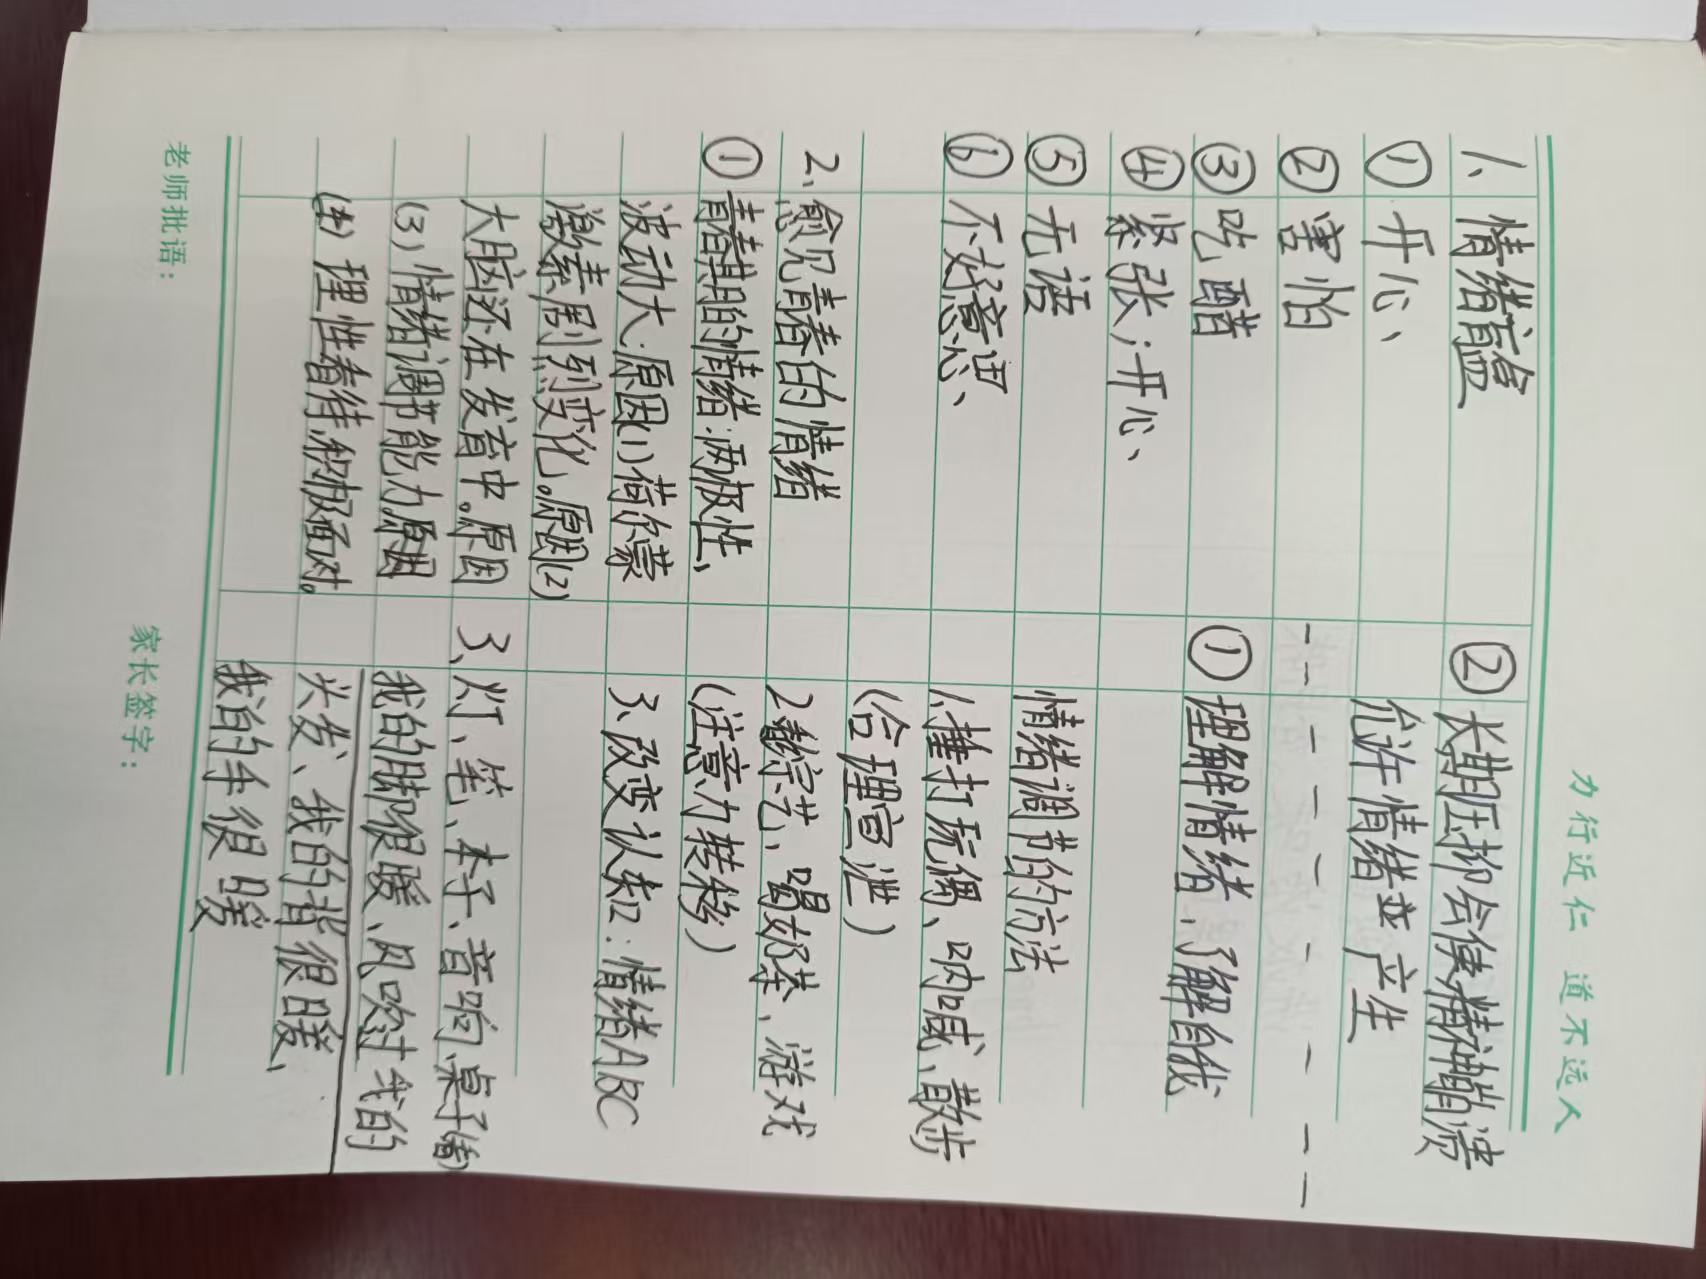 力行近仁 道不远人
1、情绪盲盒
① 开心、
② 害怕
③ 吃醋
④ 紧张;开心、
⑤ 无语
⑥ 不好意思、
2、愈见青春的情绪
① 青春期的情绪:两极性、
波动大.原因(1)荷尔蒙
激素剧烈变化。原因(2)
大脑还在发育中。原因
(3)情绪调节能力原因
(4) 理性看待,积极面对。
② 长期压抑会使精神崩溃
允许情绪产生
① 理解情绪、了解自我
情绪调节的方法
1.捶打玩偶、呐喊、散步
(合理宣泄)
2综艺、喝奶茶、游戏
(注意力转移)
3、改变认知:情绪ABC
3、灯、笔、本子、音响、桌子
我的脚很暖、风吹过我的
头发、我的背很暖、
我的手很暖
老师批语:
家长签字: